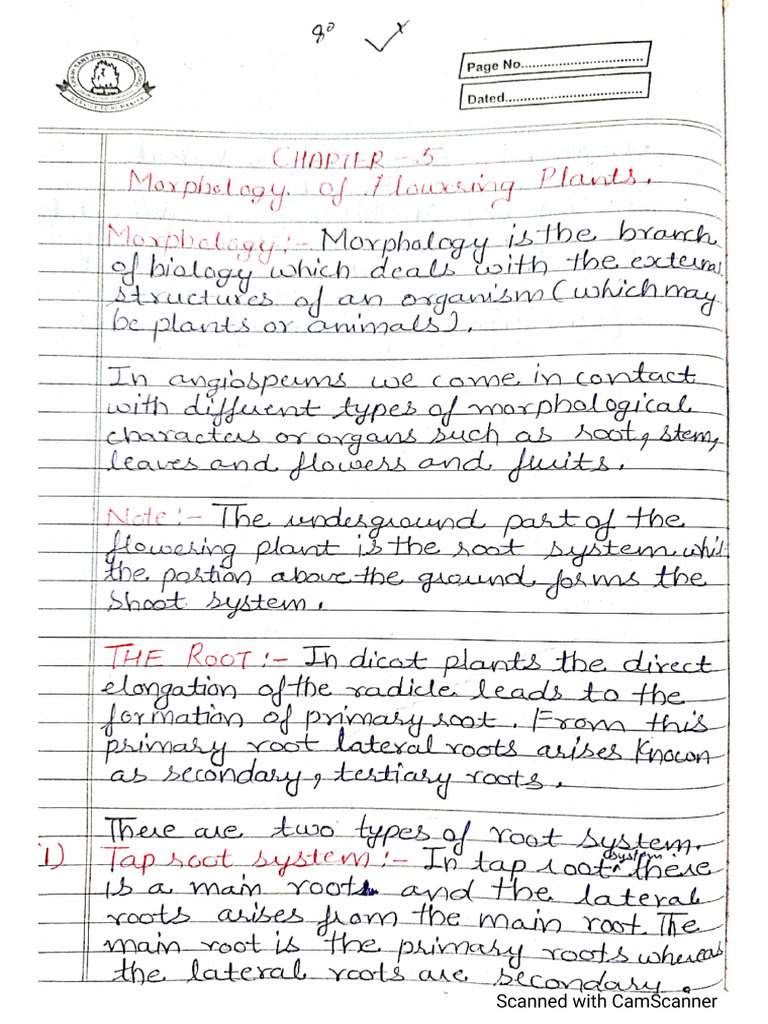 80
Page No.
Dated
CHAPTER - 5
Morphology of Flowering Plants.
Morphology :- Morphology is the branch
of biology which deals with the external
structures of an organism (which may
be plants or animals).
In angiosperms we come in contact
with different types of morphological
characters or organs such as root, stem,
leaves and flowers and fruits.
Note :- The underground part of the
flowering plant is the root system whil
the portion above the ground forms the
shoot system.
THE ROOT :- In dicot plants the direct
elongation of the radicle leads to the
formation of primary root. From this
primary root lateral roots arises known
as secondary, tertiary roots.
There are two types of root system.
1) Tap root system :- In tap root system there
is a main root and the lateral
roots arises from the main root. The
main root is the primary roots whereas
the lateral roots are secondary.
Scanned with CamScanner